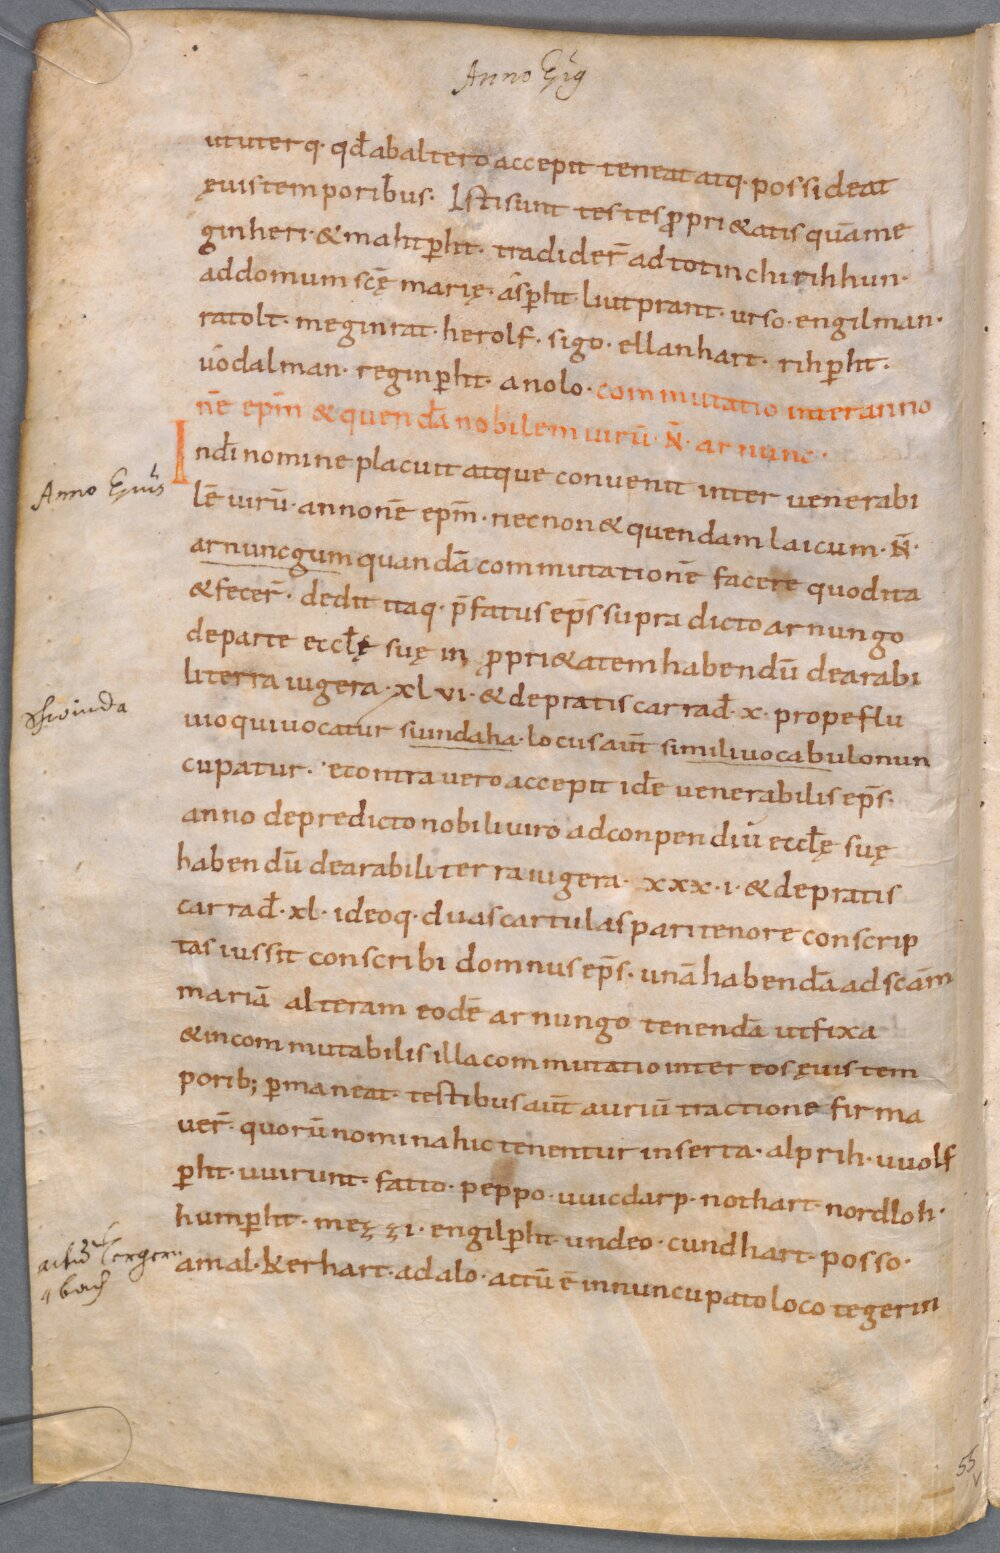 Anno Ep̄g
ut uterq· qđ ab altero accepit teneat atq· possideat
ęuis temporibus· Isti sunt testes p̱prі&atis quā me
ginheri·&mahtp̱ht· tradider̄ ad totinchirihhun·
ad domum scę̄ marię· asp̱ht liutprant· urso· engilman·
ratolt· meginrat· herolf· sigo· ellanhart· rihp̱ht·
uodalman· reginp̱ht· anolo· commutatio inter anno
nē epm̄ & quendā nobilem uirū· N̄· arnunc·
Indī nomine placuit atque convenit inter venerabi
lē uirū· annonē epm̄· necnon & quendam laicum· N̄·
arnuncgum quandā commutationē facere quod ita
& fecer̄· dedit itaq· p̄fatus ep̄s supra dicto arnungo
de parte eccłę suę in p̱pri&atem habendū de arabi
li terra iugera· xlvi· & de pratis carrad̄· x· prope flu
uio qui uocatur siundaha· locus aut̄ simili uocabulo nun
cupatur· econtra vero accepit idē venerabilis ep̄s·
anno de predicto nobili viro ad conpendiū eccłę suę
habendū de arabili terra iugera· xxx·i· & de pratis
carrad̄· xl· ideoq· duas cartulas pari tenore conscrip
tas iussit conscribi domnus ep̄s· unā habendā ad scām
mariā alteram eodē arnungo tenendā ut fixa
& incommutabilis illa commutatio inter eos ęuis tem
porib; p̱maneat· testibus aut̄ auriū tractione firma
uer̄· quorū nomina hic tenentur inserta· alprih· uuolf
p̱ht· uuirunt· fatto· peppo· uuicdarp· nothart· nordloh·
hump̱ht· męzzi· engilp̱ht undeo· cundhart· posso·
amal· kerhart· adalo· actū ē in nuncupato loco tegerin
Anno Epūs
Schwinda
actū Tegern
bach
55
v